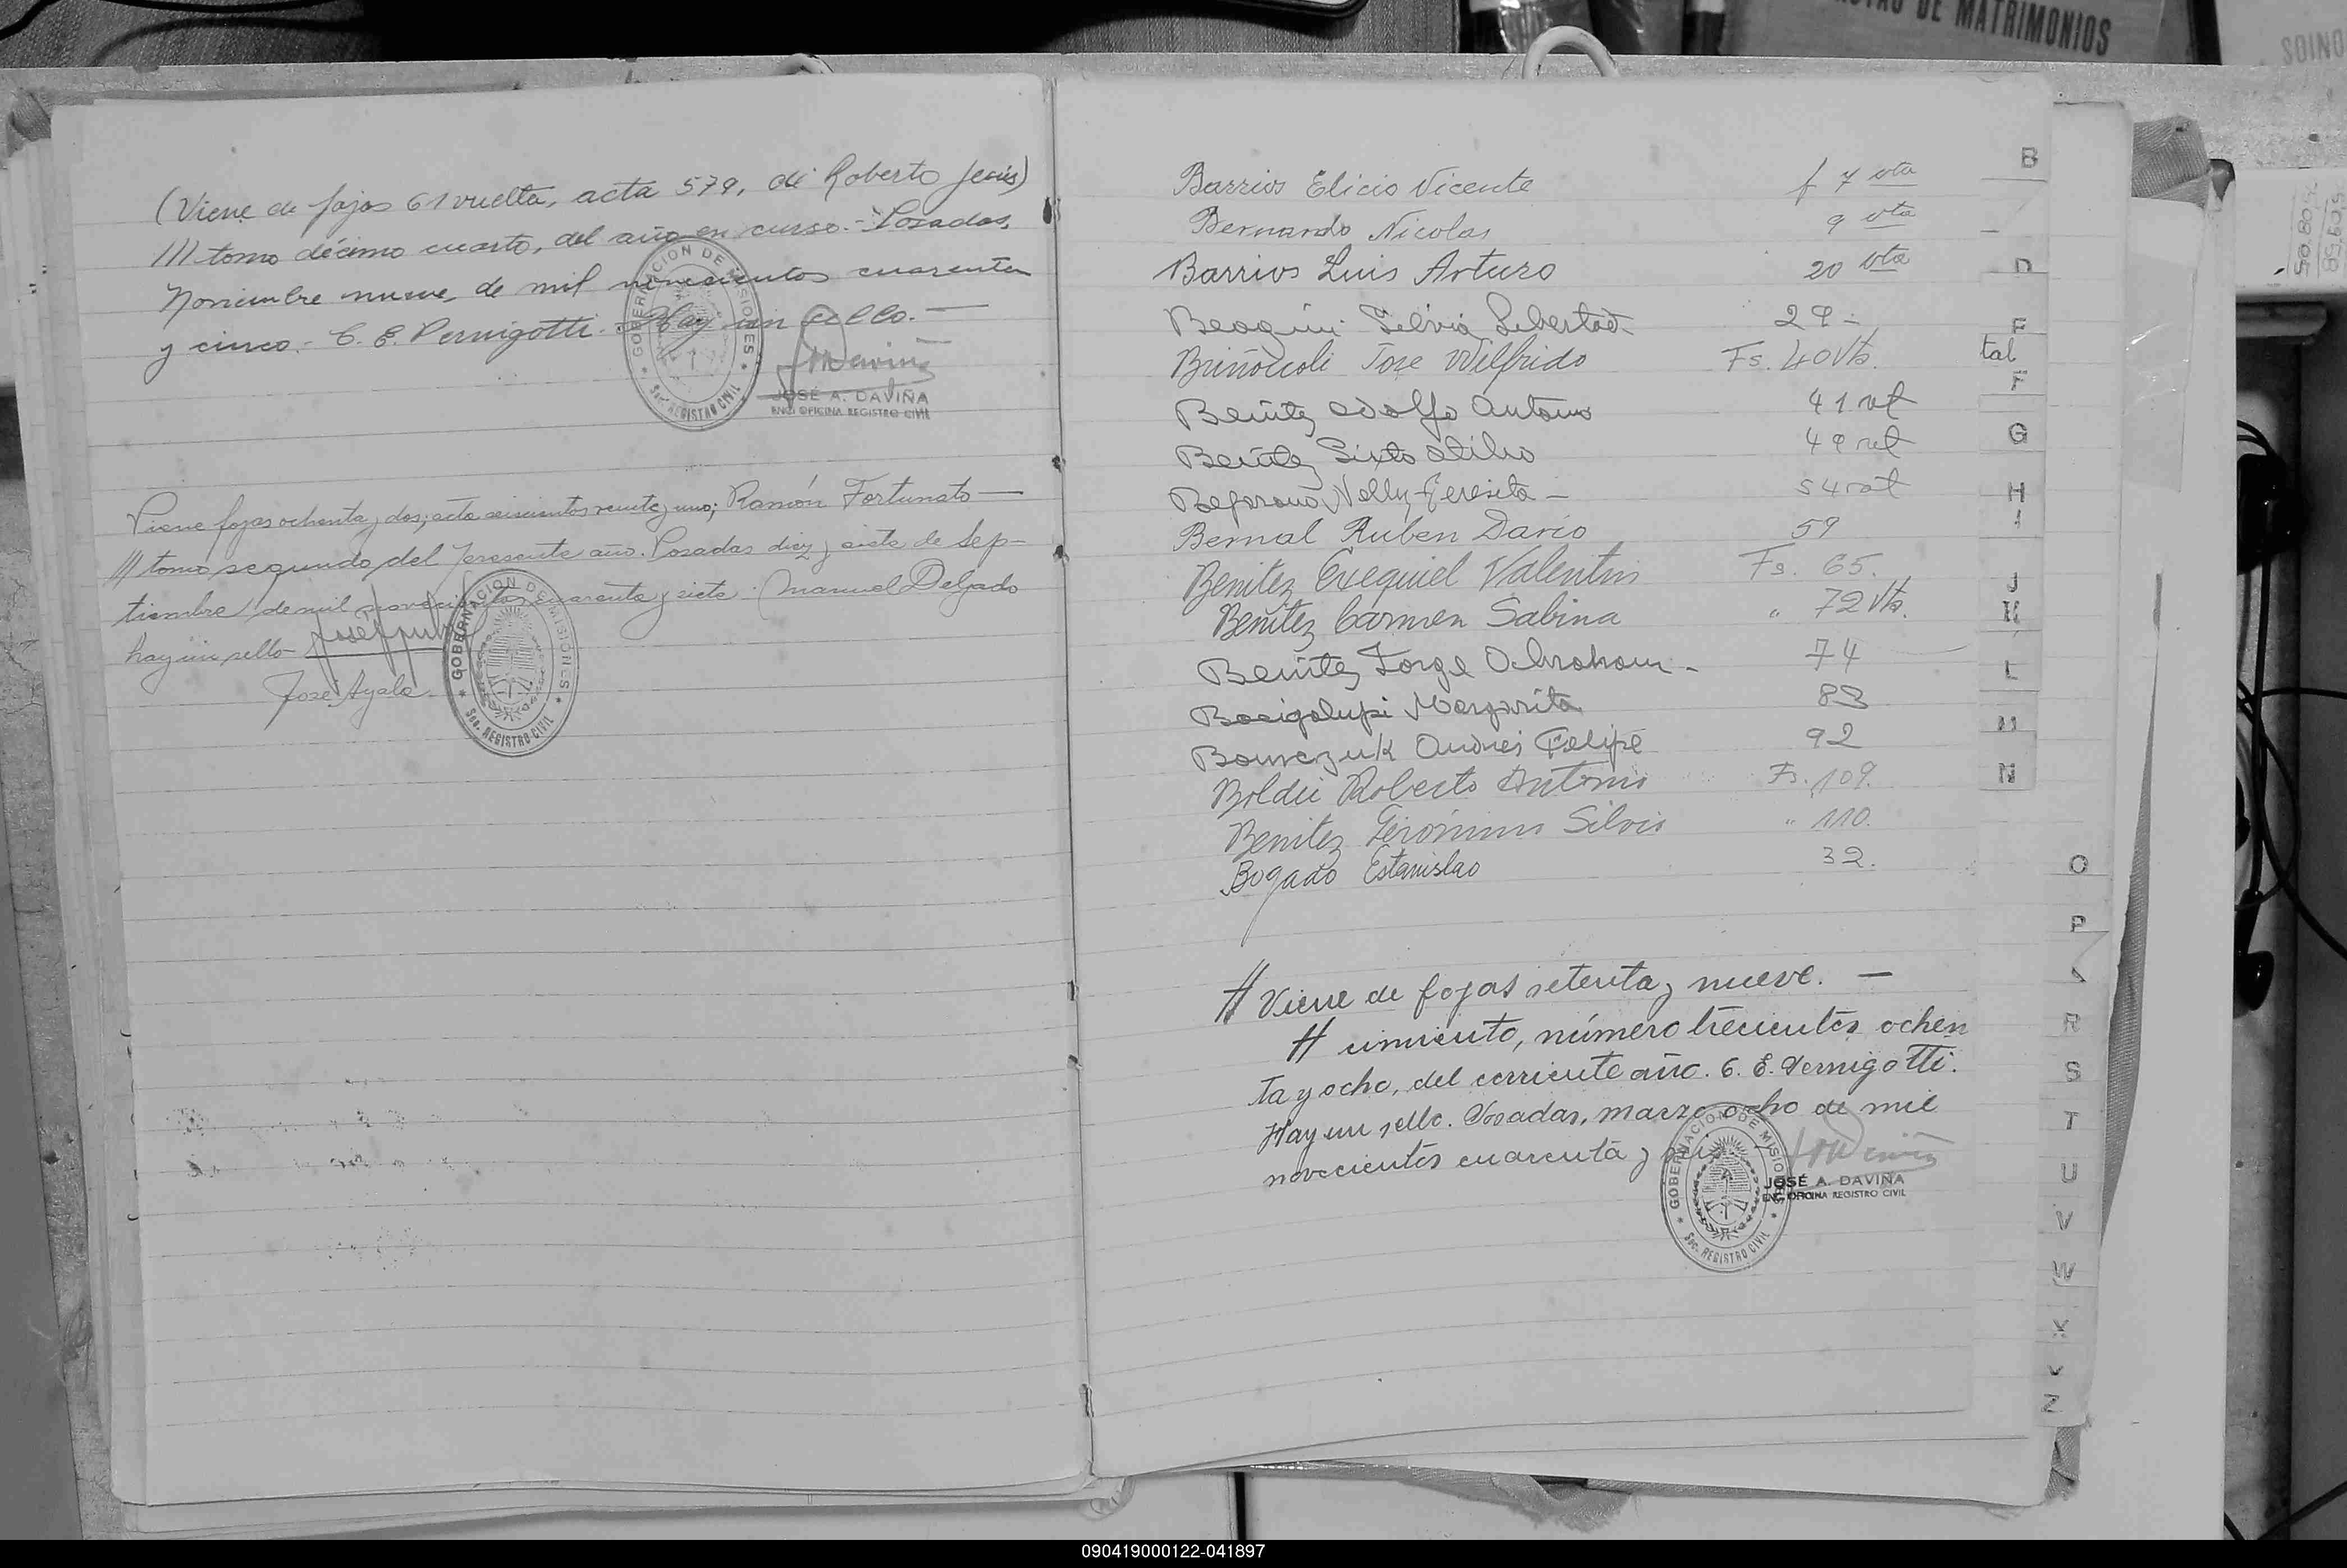 DE MATRIMONIOS
(Viene de fojas 61 vuelta, acta 579, de Roberto Jesús)
/// tomo décimo cuarto, del año en curso.- Posadas,
Noviembre nueve de mil novecientos cuarenta
y cinco.- C. E. Pernigotti.- Hay un sello.—
GOBERNACION DE MISIONES
Sec. REGISTRO CIVIL
JOSÉ A. DAVIÑA
ENC. OFICINA REGISTRO CIVIL
Viene fojas ochenta y dos; acta seiscientos veinte y uno; Ramón Fortunato —
/// tomo segundo del presente año. Posadas diez y siete de Sep-
tiembre de mil novecientos cuarenta y siete. Manuel Delgado
hay un sello-
José Ayala
GOBERNACION DE MISIONES
Sec. REGISTRO CIVIL
Barrios Elicio Vicente f 7 vta
Bernardo Nicolas 9 vta
Barrios Luis Arturo 20 vta
Silvia Libertad 29-
José Wilfrido Fs. 40 Vta.
Benitez Adolfo Antonio 41 vt
Benitez Sixto Atilio 49 vt
Nelly Teresita - 54 vt
Bernal Ruben Dario 59
Benitez Exequiel Valentin Fs. 65.
Benitez Carmen Sabina " 72 Vta.
Benitez Jorge Abraham - 74
Bacigalupi Margarita 83
Andres Felipe 92
Roberto Antonio Fs. 109.
Benitez Gerónimo Silvio " 110.
Bogado Estanislao 32.
# Viene de fojas setenta y nueve. —
# cimiento, número trecientos ochen
ta y ocho, del corriente año. C. E. Pernigotti.
Hay un sello. Posadas, marzo ocho de mil
novecientos cuarenta y
GOBERNACION DE MISIONES
Sec. REGISTRO CIVIL
JOSÉ A. DAVIÑA
ENC. OFICINA REGISTRO CIVIL
B
D
E
tal
F
G
H
I
J
K
L
M
N
O
P
R
S
T
U
V
W
X
Y
Z
090419000122-041897